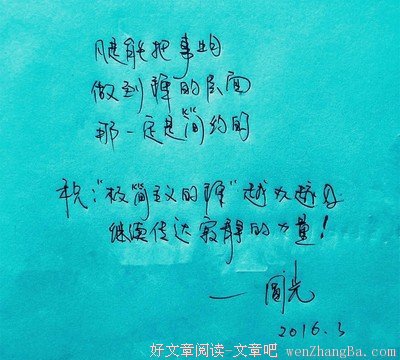 能把事物
做到禅的层面
那一定是简约的
祝:"极简主义的禅"越办越好
继续传达寂静的力量!
一圆光
2016.3
好文章阅读-文章吧 wenZhangBa.com